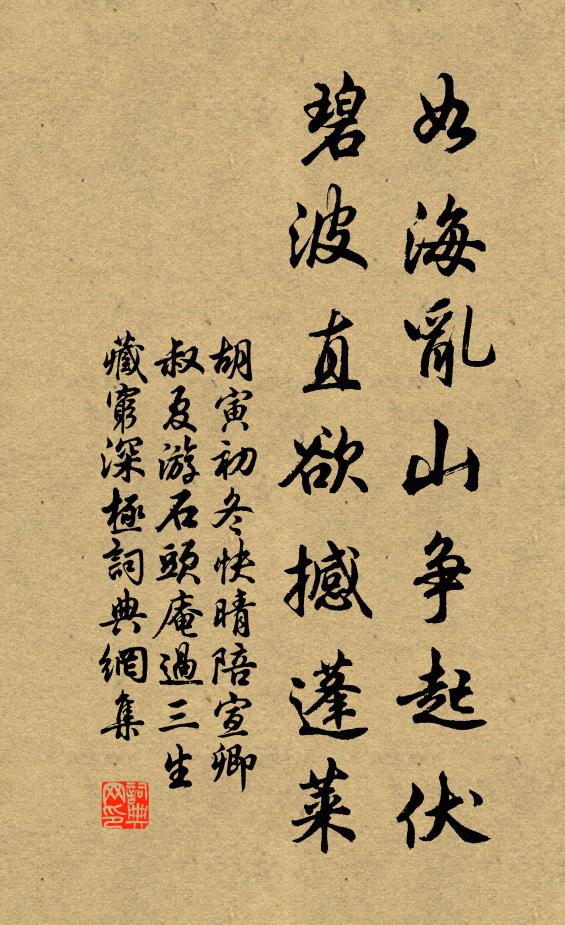 如海亂山争起伏
碧波直欲撼蓬萊
胡寅初冬快晴陪宣卿
叔夏游石頭庵過三生
藏窮深極詞典網集
詞典
网印